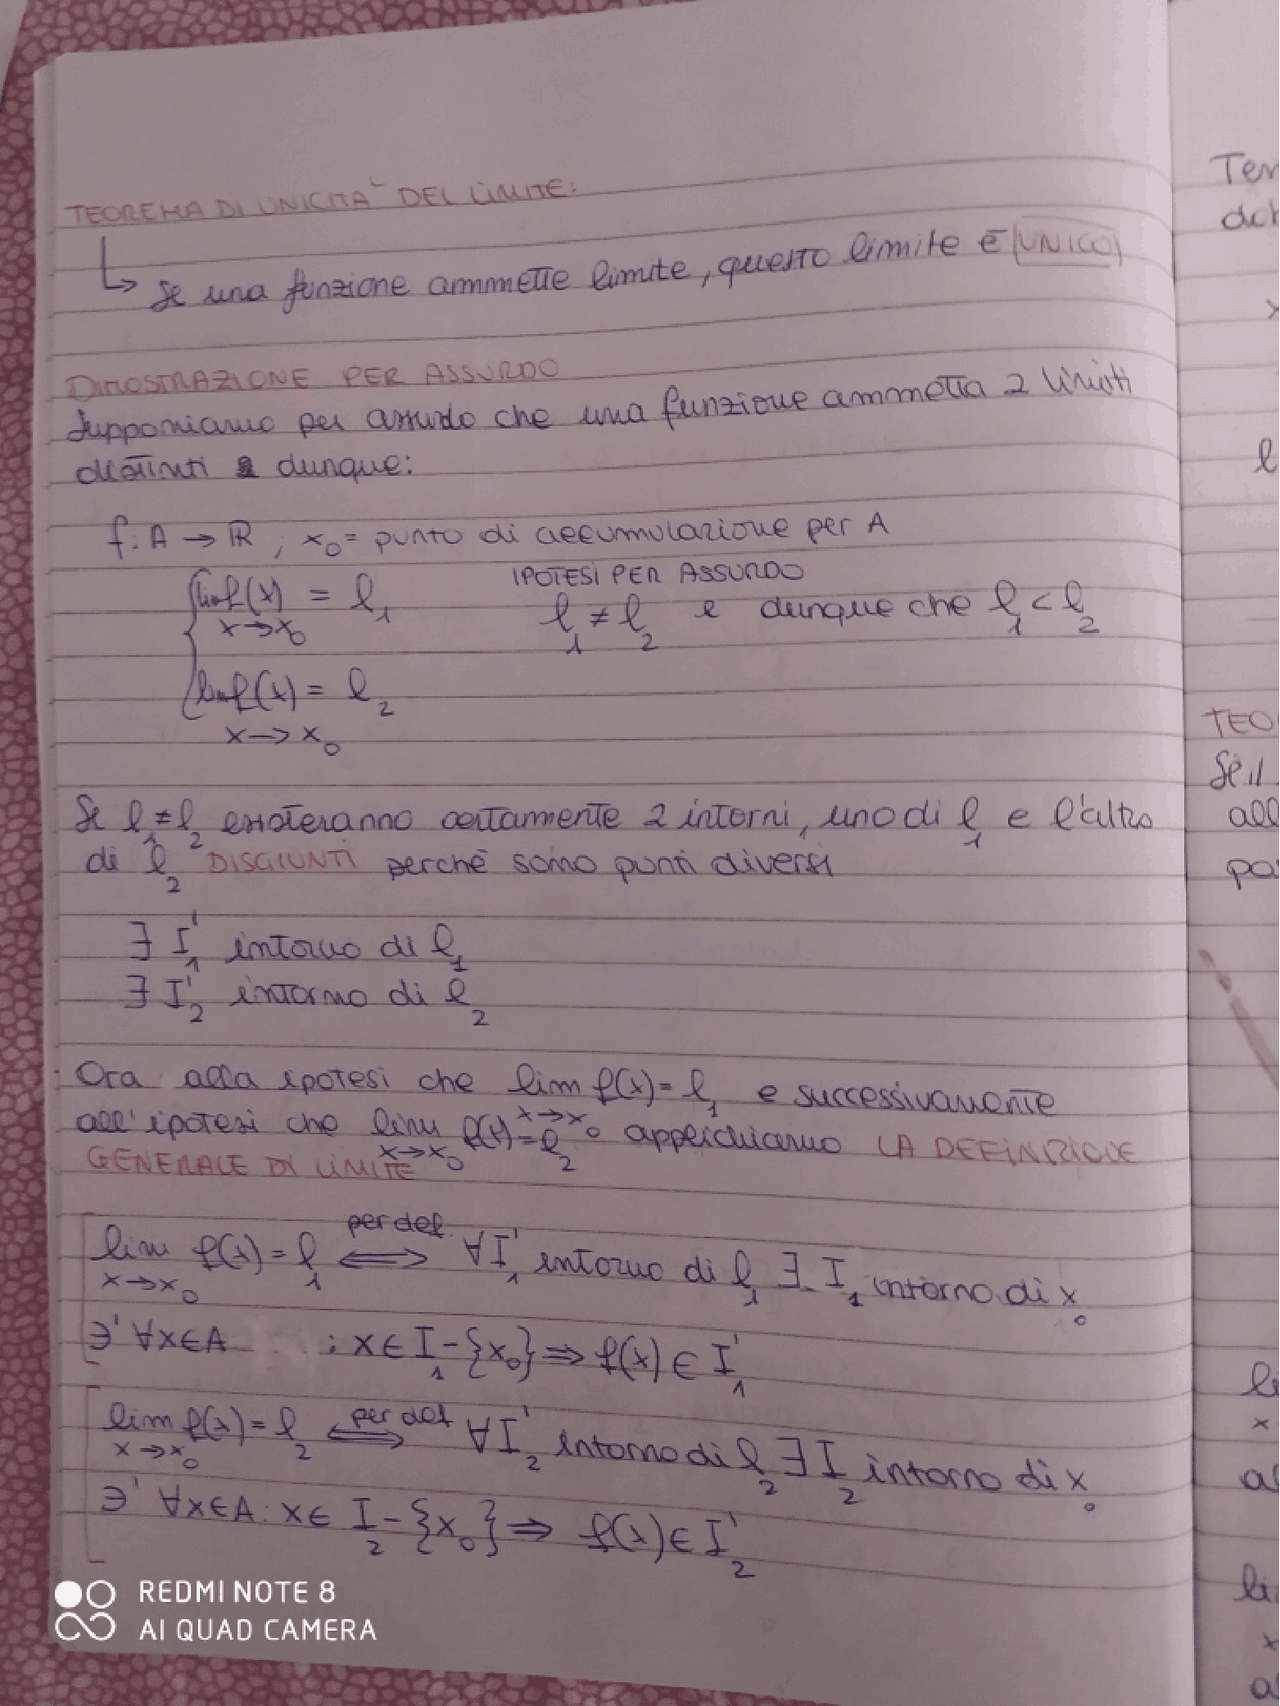 TEOREMA DI UNICITA' DEL LIMITE:
↳ Se una funzione ammette limite, questo limite è UNICO
DIMOSTRAZIONE PER ASSURDO
Supponiamo per assurdo che una funzione ammetta 2 limiti
distinti e dunque:
f: A → ℝ ; x₀ = punto di accumulazione per A
IPOTESI PER ASSURDO
lim f(x) = l₁ l₁ ≠ l₂ e dunque che l₁ < l₂
x→x₀
lim f(x) = l₂
x→x₀
Se l₁ ≠ l₂ esisteranno certamente 2 intorni, uno di l₁ e l'altro
di l₂ DISGIUNTI perchè sono punti diversi
∃ I₁' intorno di l₁
∃ I₂' intorno di l₂
Ora alla ipotesi che lim f(x) = l₁ e successivamente
x→x₀
all'ipotesi che lim f(x) = l₂ applichiamo LA DEFINIZIONE
x→x₀
GENERALE DI LIMITE
lim f(x) = l₁ ⟺ per def. ∀ I₁' intorno di l₁ ∃ I₁ intorno di x₀
x→x₀
∋' ∀x∈A : x ∈ I₁ - {x₀} ⇒ f(x) ∈ I₁'
lim f(x) = l₂ ⟺ per def ∀ I₂' intorno di l₂ ∃ I₂ intorno di x₀
x→x₀
∋' ∀x∈A : x ∈ I₂ - {x₀} ⇒ f(x) ∈ I₂'
REDMI NOTE 8
AI QUAD CAMERA
Se il
all